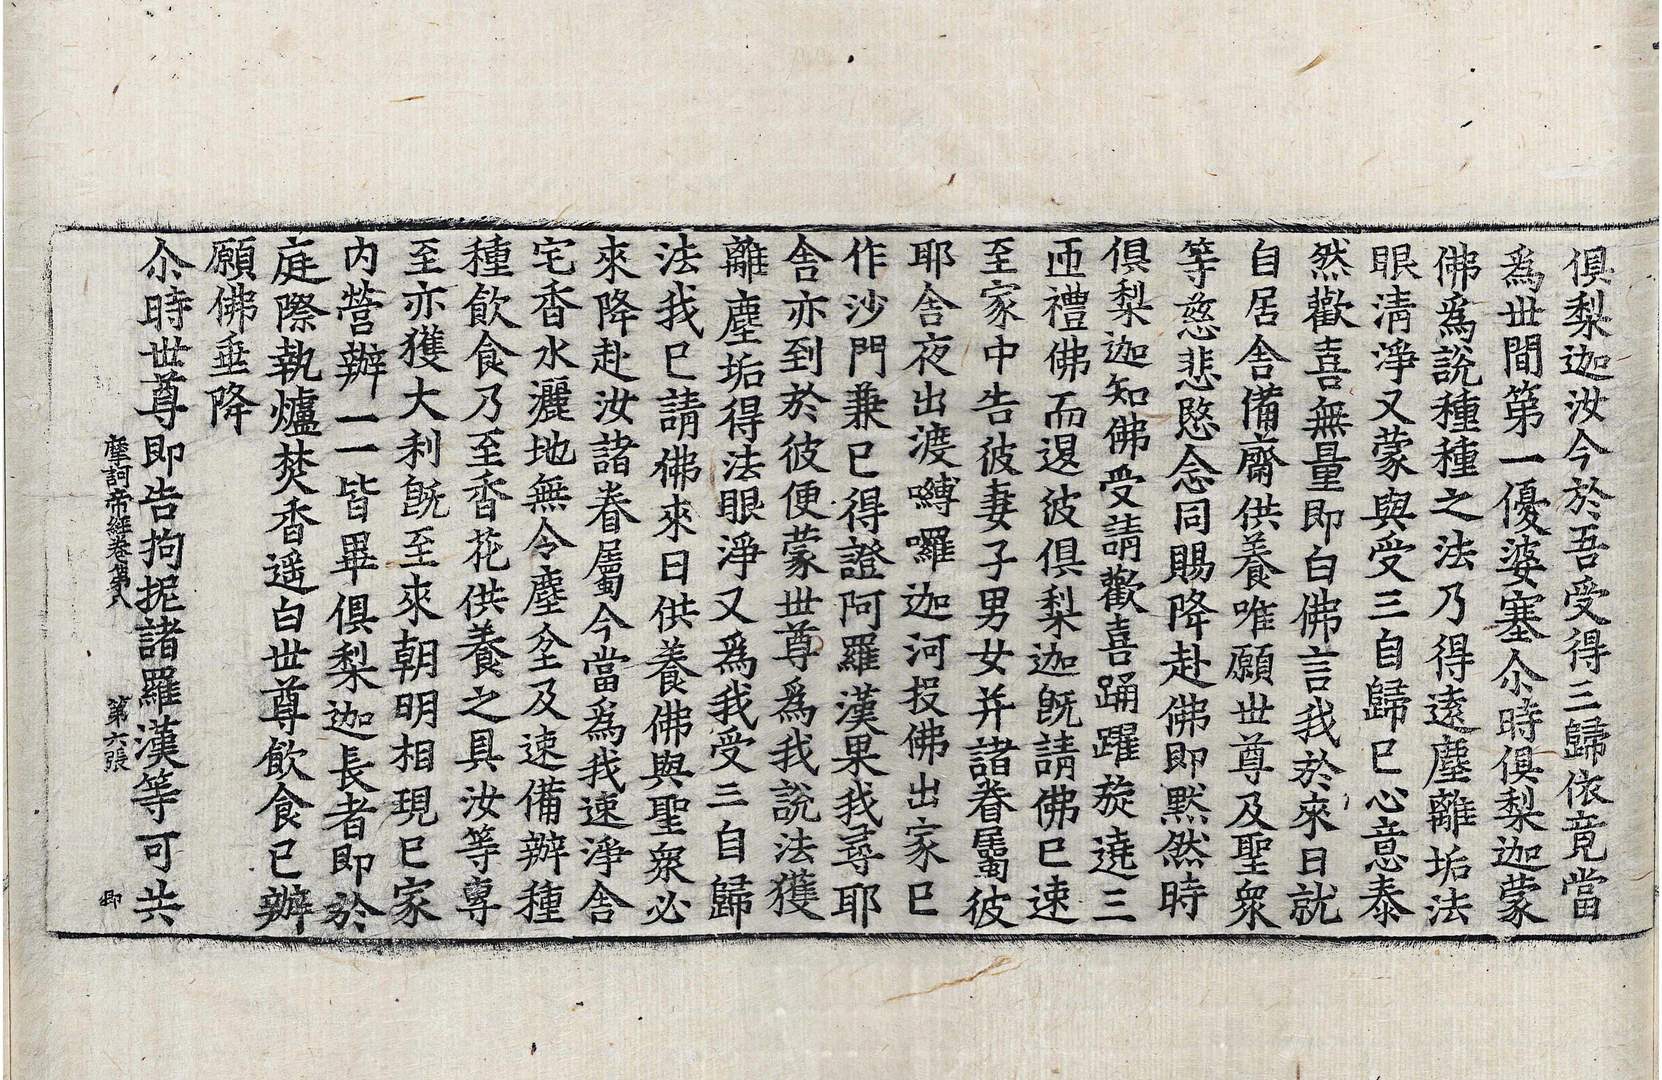 俱梨迦汝今於吾受得三歸依竟當
爲世間第一優婆塞尒時俱梨迦蒙
佛爲說種種之法乃得遠塵離垢法
眼淸淨又蒙與受三自歸已心意泰
然歡喜無量即白佛言我於來日就
自居舍備齋供養唯願世尊及聖衆
等慈悲愍念同賜降赴佛即默然時
俱梨迦知佛受請歡喜踊躍旋遶三
匝禮佛而退彼俱梨迦旣請佛已速
至家中告彼妻子男女并諸眷屬彼
耶舍夜出渡嚩囉迦河投佛出家已
作沙門兼已得證阿羅漢果我尋耶
舍亦到於彼便蒙世尊爲我說法獲
離塵垢得法眼淨又爲我受三自歸
法我已請佛來日供養佛與聖衆必
來降赴汝諸眷屬今當爲我速淨舍
宅香水灑地無令塵坌及速備辦種
種飮食乃至香花供養之具汝等專
至亦獲大利旣至來朝明相現已家
内營辦一一皆畢俱梨迦長者即於
庭際執爐焚香遥白世尊飮食已辦
願佛垂降
尒時世尊即告拘抳諸羅漢等可共
摩訶帝經卷第八 第六張 即